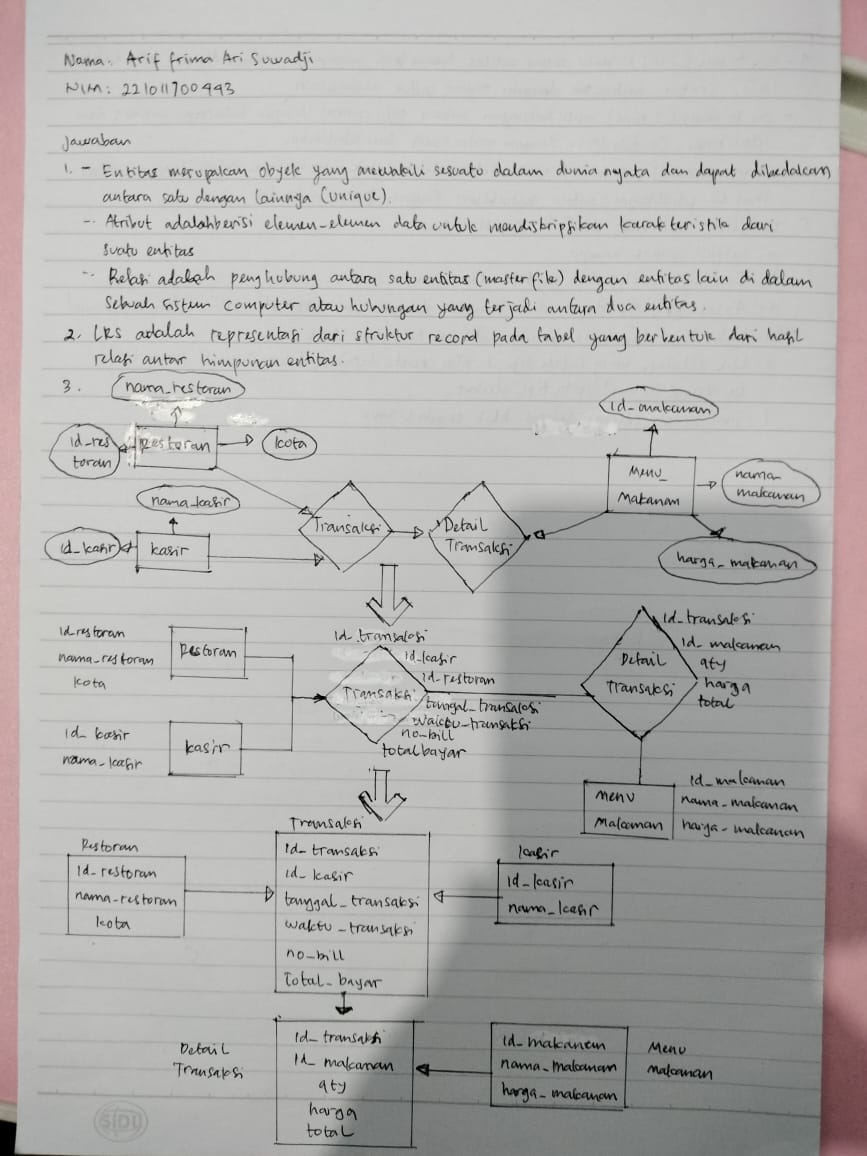 Nama: Arif frima Ari Suwadji
NIM: 221011700443
Jawaban
1. - Entitas merupakan obyek yang mewakili sesuatu dalam dunia nyata dan dapat dibedakan
antara satu dengan lainnya (unique).
- Atribut adalahberisi elemen-elemen data untuk mendiskripsikan karakteristik dari
suatu entitas
- Relasi adalah penghubung antara satu entitas (master file) dengan entitas lain di dalam
sebuah sistem computer atau hubungan yang terjadi antara dua entitas.
2. LRS adalah representasi dari struktur record pada tabel yang berbentuk dari hasil
relasi antar himpunan entitas.
3.
nama_restoran
id_makanan
id_res
toran
Restoran
kota
Menu_
Makanan
nama_
makanan
nama_kasir
id_kasir
kasir
Transaksi
Detail
Transaksi
harga_makanan
id_restoran
nama_restoran
kota
Restoran
id_kasir
nama_kasir
kasir
id_transaksi
id_kasir
id_restoran
Transaksi
tanggal_transaksi
waktu-transaksi
no-bill
total bayar
Detail
Transaksi
id_transaksi
id_makanan
qty
harga
total
Menu
Makanan
id_makanan
nama-makanan
harga-makanan
Restoran
id-restoran
nama-restoran
kota
Transaksi
id-transaksi
id-kasir
tanggal_transaksi
waktu-transaksi
no-bill
total_bayar
kasir
id-kasir
nama_kasir
Detail
Transaksi
id-transaksi
id_makanan
qty
harga
total
id-makanan
nama-makanan
harga-makanan
Menu
makanan
SIDU